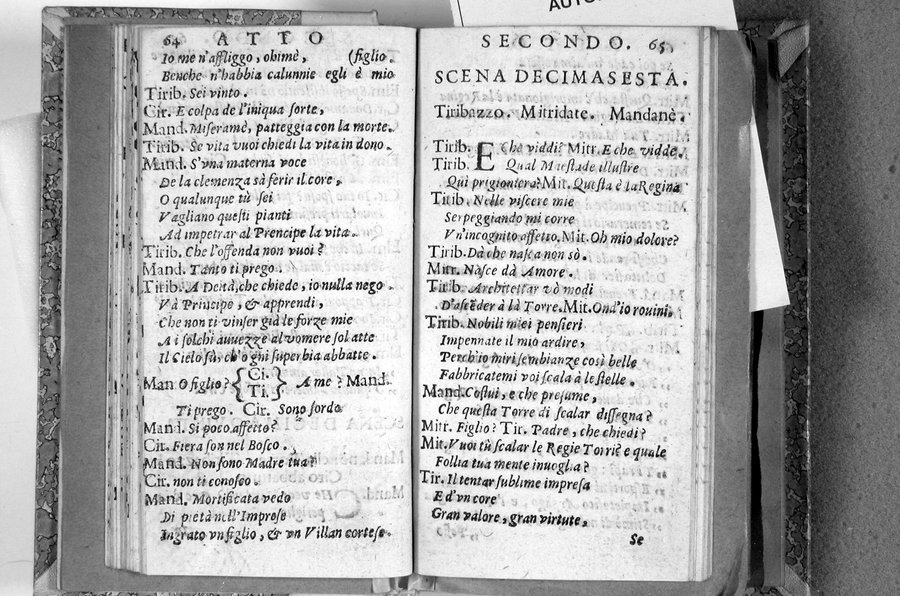 AUTO
64 ATTO
Io me n'affliggo, ohimè, (figlio.
Benche n'habbia calunnie egli è mio
Tirib. Sei vinto.
Cir. E colpa de l'iniqua sorte,
Mand. Miseramè, patteggia con la morte.
Tirib. Se vita vuoi chiedi la vita in dono.
Mand. S'vna materna voce
De la clemenza sà ferir il core,
O qualunque tù sei
Vagliano questi pianti
Ad impetrar al Prencipe la vita.
Tirib. Che l'offenda non vuoi?
Mand. Tanto ti prego.
Tirib. A Deità, che chiede, io nulla nego
Và Principe, & apprendi,
Che non ti vinser già le forze mie
A i solchi auuezze al vomere sol atte
Il Cielo fù, ch'ogni superbia abbatte.
Man. O figlio? { Ci. Ti. } A me? Mand.
Ti prego. Cir. Sono sordo
Mand. Si poco affetto?
Cir. Fiera son nel Bosco.
Mand. Non sono Madre tua?
Cir. non ti conosco.
Mand. Mortificata vedo
Di pietà nell'Imprese
Ingrato vn figlio, & vn Villan cortese.
SECONDO. 65
SCENA DECIMASESTA.
Tiribazzo. Mitridate. Mandanè.
Tirib. E Che viddi? Mitr. E che vidde.
Tirib. Qual Maestade illustre
Qui prigioniera? Mit. Questa è la Regina
Tirib. Nelle viscere mie
Serpeggiando mi corre
Vn'incognito affetto. Mit. Oh mio dolore?
Tirib. Dà che nasca non sò.
Mitr. Nasce dà Amore.
Tirib. Architettar vò modi
D'ascēder à la Torre. Mit. Ond'io rouini.
Tirib. Nobili miei pensieri
Impennate il mio ardire,
Perch'io miri sembianze così belle
Fabbricatemi voi scala à le stelle.
Mand. Costui, e che presume,
Che questa Torre di scalar dissegna?
Mitr. Figlio? Tir. Padre, che chiedi?
Mit. Vuoi tù scalar le Regie Torri? e quale
Follia tua mente inuoglia?
Tir. Il tentar sublime impresa
E d'vn core
Gran valore, gran virtute,
Se